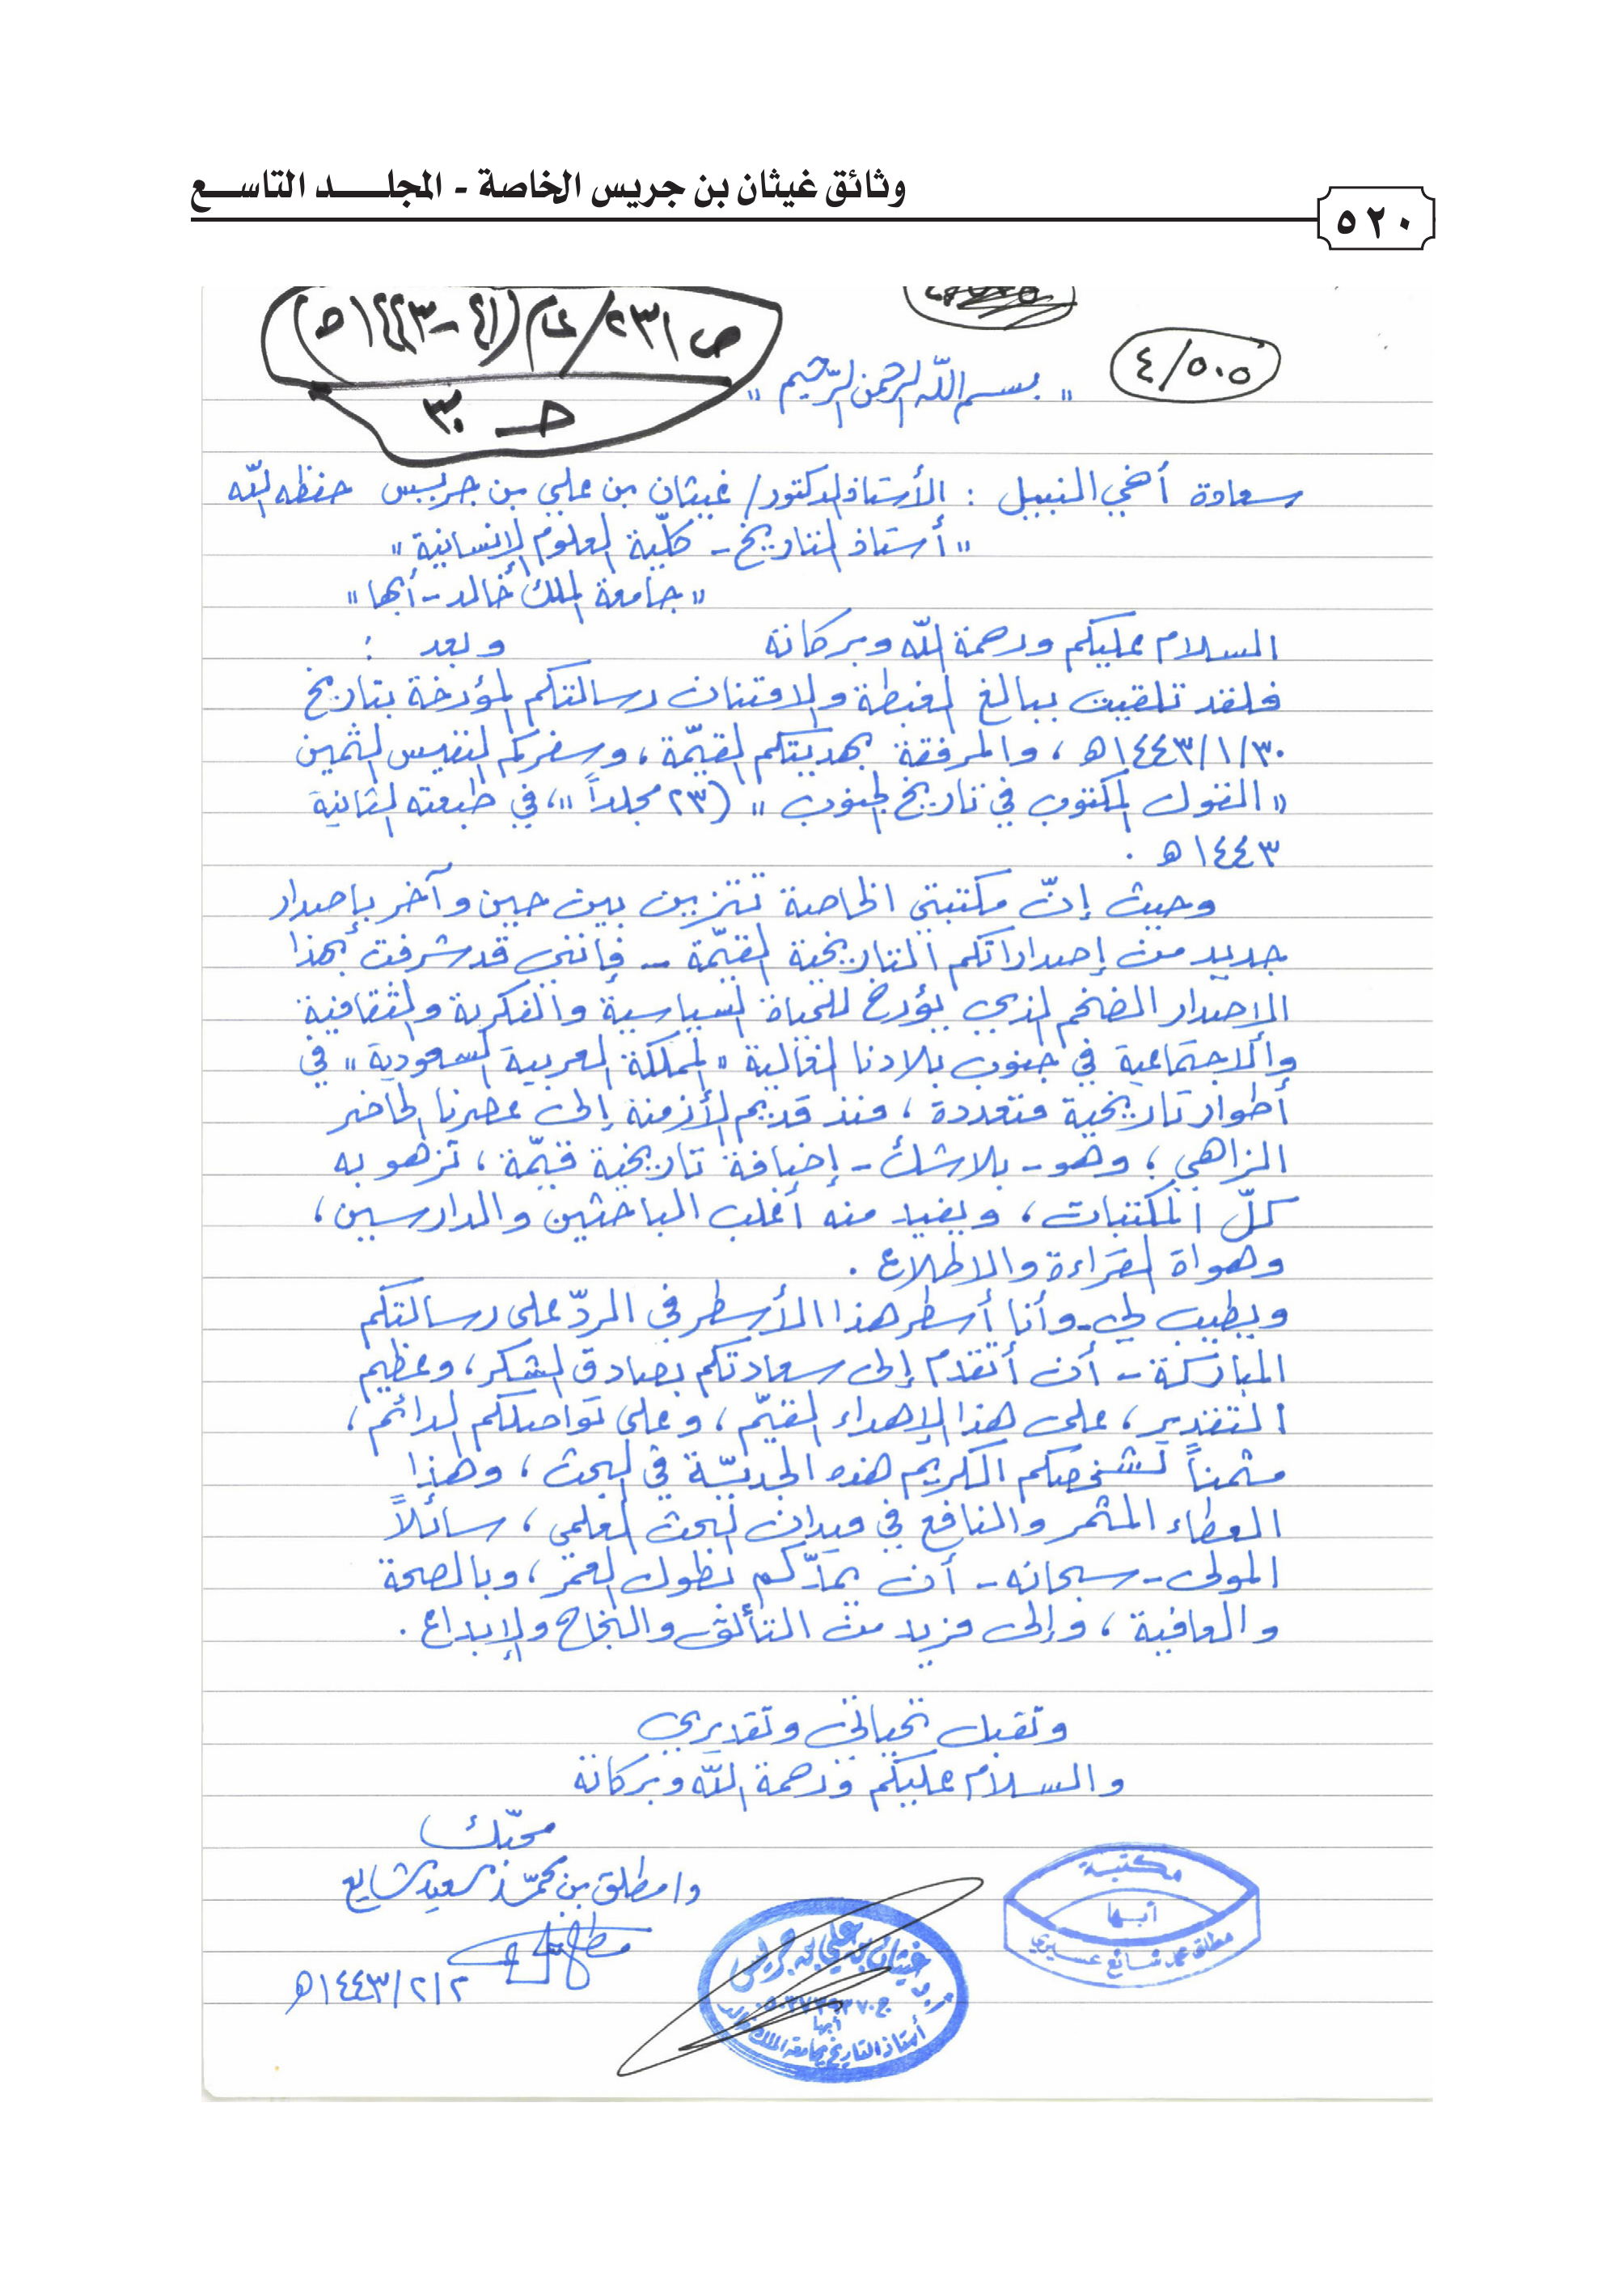 وثائق غيثان بن جريس الخاصة - المجلـــــد التاســـع
٥٢٠
ص ٢٣١/عام (٤١ - ١٤٤٣هـ)
حـ ٣٠
٤/٥٠٥
"بسم الله الرحمن الرحيم"
سعادة أخي النبيل : الأستاذ الدكتور/ غيثان بن علي بن جريس حفظه الله
"أستاذ التاريخ - كلّية العلوم الإنسانية"
"جامعة الملك خالد - أبها"
السلام عليكم ورحمة الله وبركاته وبعد :
فلقد تلقيت ببالغ الغبطة والامتنان رسالتكم المؤرخة بتاريخ
١٤٤٣/١/٣٠هـ ، والمرفقة بهديتكم القيّمة ، وسفركم النفيس الثمين
"القول المكتوب في تاريخ الجنوب" (٢٣ مجلداً"، في طبعته الثانية
١٤٤٣هـ .
وحيث إنّ مكتبتي الخاصة تتزين بين حين وآخر بإصدار
جديد من إصداراتكم التاريخية القيّمة - فإنني قد شرفت بهذا
الإصدار الضخم الذي يؤرخ للحياة السياسية والفكرية والثقافية
والاجتماعية في جنوب بلادنا الغالية "المملكة العربية السعودية" في
أطوار تاريخية متعددة ، منذ قديم الأزمنة إلى عصرنا الحاضر
الزاهي ، وهو - بلا شك - إضافة تاريخية قيّمة ، تزهو به
كلّ المكتبات ، ويفيد منه أغلب الباحثين والدارسين ،
وهواة القراءة والاطلاع .
ويطيب لي - وأنا أسطر هذا الأسطر في الردّ على رسالتكم
المباركة - أن أتقدم إلى سعادتكم بصادق الشكر ، وعظيم
التقدير ، على هذا الإهداء القيّم ، وعلى تواصلكم الدائم ،
مثمناً لشخصكم الكريم هذه الجديّة في البحث ، وهذا
العطاء المثمر والنافع في ميدان البحث العلمي ، سائلاً
المولى - سبحانه - أن يمدّكم بطول العمر ، وبالصحة
والعافية ، وإلى مزيد من التألق والنجاح والإبداع .
وتقبل تحياتي وتقديري
والسلام عليكم ورحمة الله وبركاته
محبّك
مطلق بن محمّد سعيد شايع
١٤٤٣/٢/٢هـ
مكتبة
أبها
مطلق محمد شائع عسيري
غيثان بن علي بن جريس
أبها
أستاذ التاريخ بجامعة الملك خالد